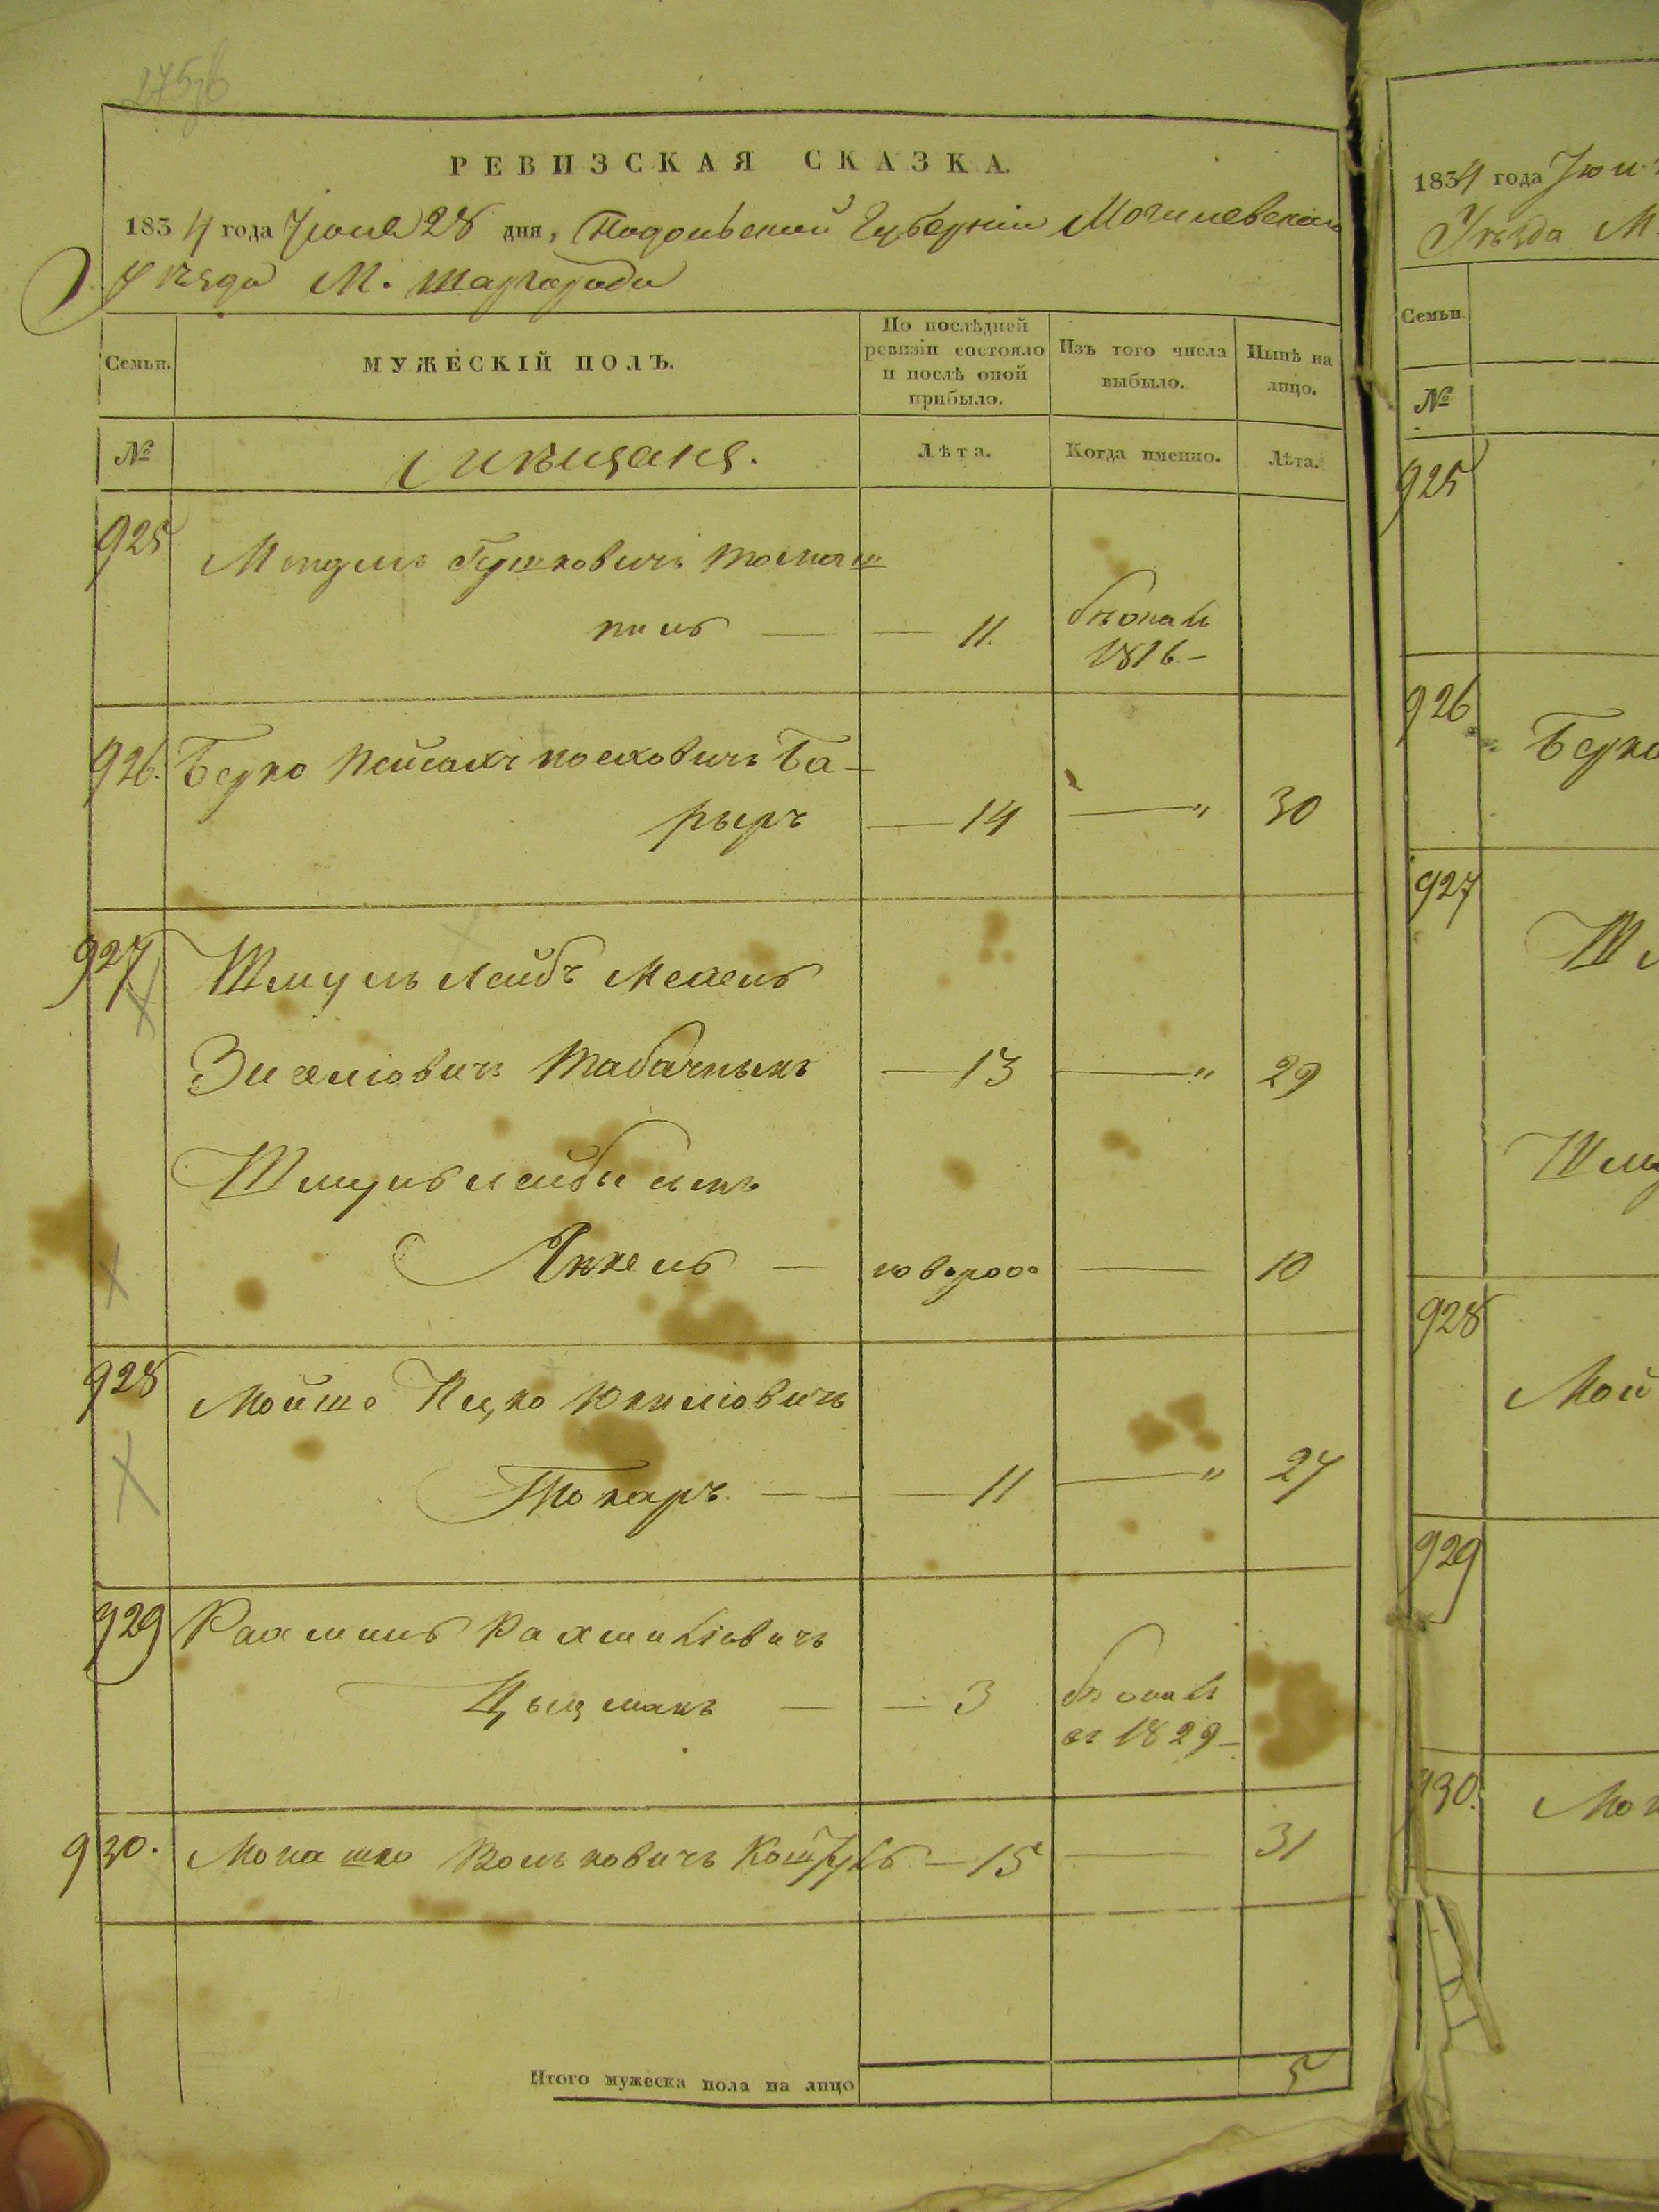 РЕВИЗСКАЯ СКАЗКА.
1834 года Іюня 28 дня, Подольской Губерніи Могилевскаго
Уѣзда М. Шаргорода
Семьи.
МУЖЕСКІЙ ПОЛЪ.
По послѣдней ревизіи состояло и послѣ оной прибыло.
Изъ того числа выбыло.
Нынѣ на лицо.
№
Мѣщане.
Лѣта.
Когда именно.
Лѣта.
925
Мендель
11.
бѣжалъ
1816
926.
Берко Пейсахъ Иосковичъ Ба-
рыръ
14
30
927
Шмуль Лейбъ Мехель
Зисельовичъ Табачныкъ
13
29
Шмуль Лейбы сынъ
Янкель
новорож
10
928
Мойше Ицко Юкильовичъ
Токаръ
11
27
929
Рахмиль Рахмильовичъ
3
бѣжалъ
въ 1829
930.
Монашко Вольковичъ
15
31
Итого мужеска пола на лицо
5
1834 года Іюн
Уѣзда М.
Семьи.
№
925
926
Берко
927
Шм
Шму
928
Мой
929
930.
Мон